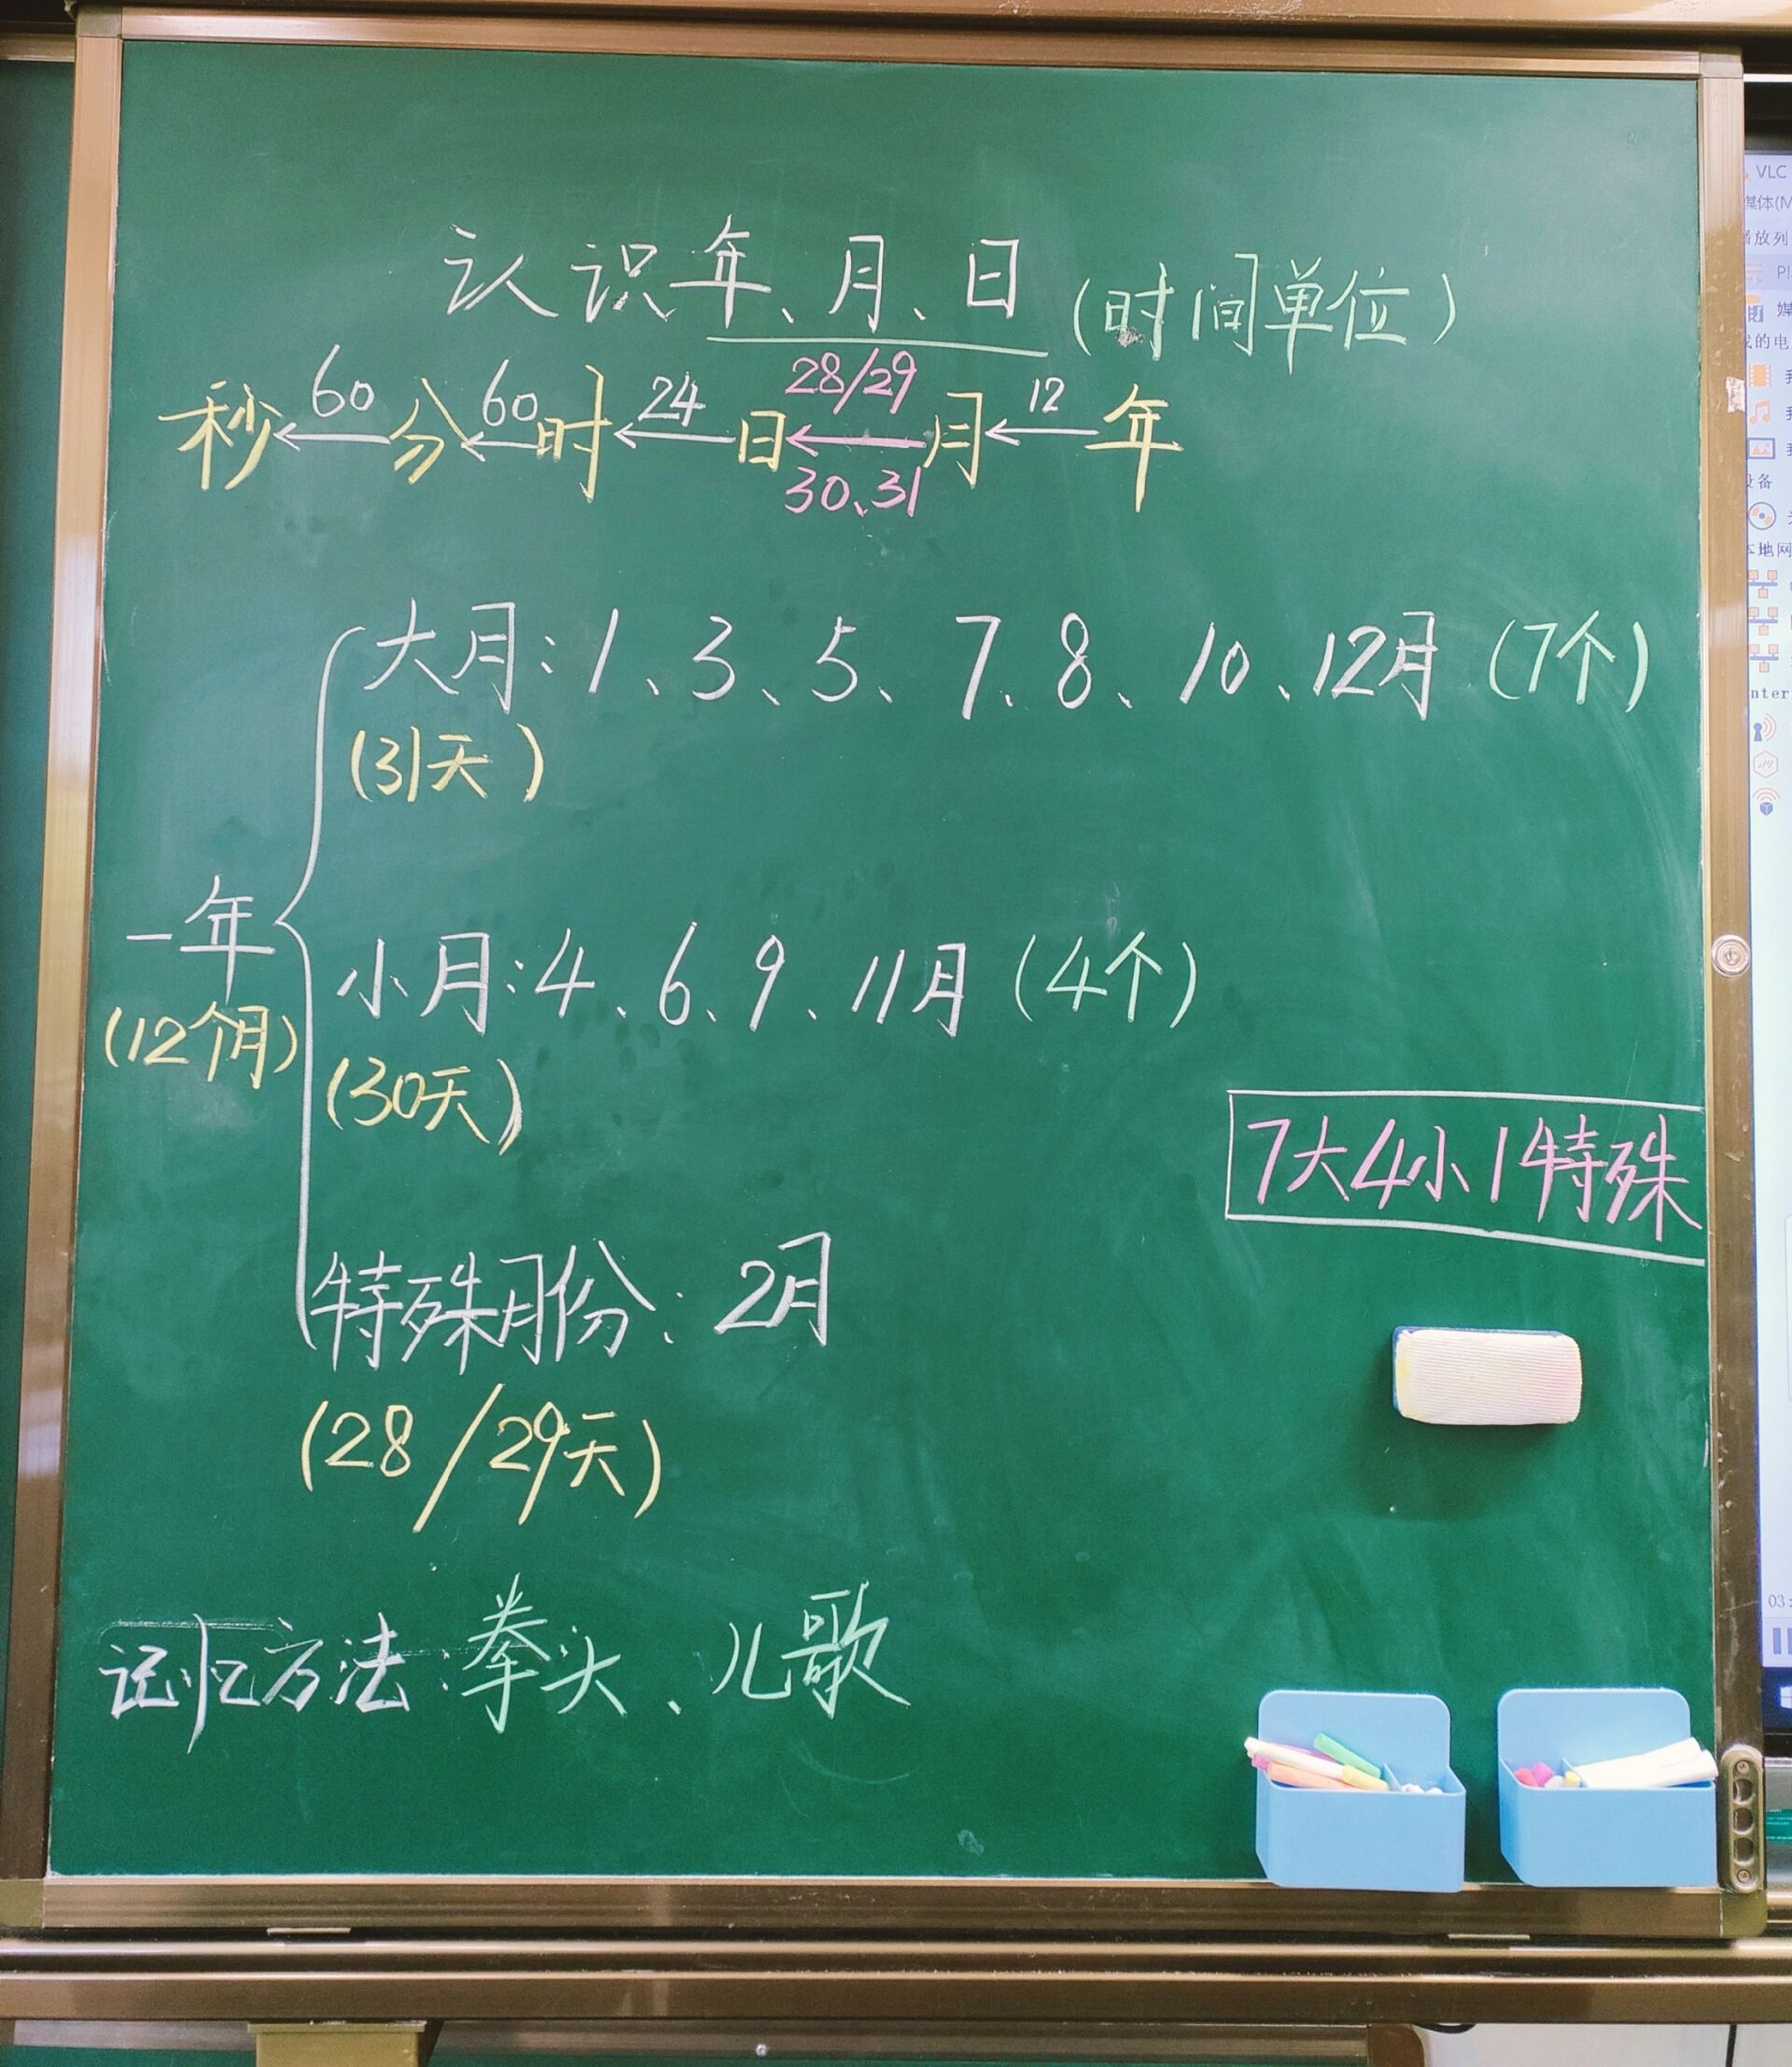 认识年、月、日(时间单位)
28/29
秒 ← 60 分 ← 60 时 ← 24 日 ← 月 ← 12 年
30、31
大月:1、3、5、7、8、10、12月(7个)
(31天)
一年
小月:4、6、9、11月(4个)
(12个月)
(30天)
7大4小1特殊
特殊月份:2月
(28/29天)
记忆方法:拳头、儿歌
VLC
媒体(M
播放列
Pl
媒
我的电
设备
本地网
nter
03: